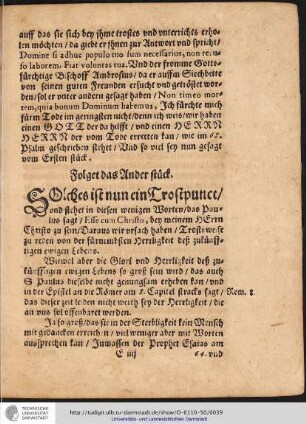 auff das sie sich bey jhme trostes vnd vnterrichts erho-
len möchten / da giebt er jhnen zur Antwort vnd spricht /
Domine si adhuc populo tuo sum necessarius, non recu-
so laborem, Fiat voluntas tua. Vnd der fromme Gotts-
fürchtige Bischoff Ambrosius / da er auffm Siechbette
von seinen guten Freunden ersucht vnd getröstet wor-
den / sol er vnter andern gesagt haben / Non timeo mor-
rem, quia bonum Dominum habemus, Ich fürchte mich
fürm Tode im geringsten nicht / denn ich weis / wir haben
einen GOTT der da hilfft / vnd einen HERRN
HERRN der vom Tode erretten kan / wie im 68.
Psalm geschrieben stehet / Vnd so viel sey nun gesagt
vom Ersten stück.
Folget das Ander stück.
SOlches ist nun ein Trostpunct /
vnd stehet in diesen wenigen Worten / das Pau-
lus sagt / Esse cum Christo, bey meinem HErrn
Christo zu sein / Daraus wir vrsach haben / Trostwei-
se zu reden von der fürnembsten Herrligkeit deß zukünff-
tigen ewigen Lebens.
Wiewol aber die Glori vnd Herrligkeit deß zu-
künfftigen ewigen Lebens so groß sein wird / das auch
S. Paulus dieselbe nicht genungsam erheben kan / vnd
in der Epistel an die Römer am 8. Capitel stracks sagt / Rom. 8.
das dieser zeit leiden nicht werth sey der Herrligkeit / die
an vns sol offenbaret werden.
Ja so groß / das sie in der Sterbligkeit kein Mensch
mit gedancken erreichen / vnd weniger aber mit Worten
aussprechen kan / Inmassen der Prophet Esaias am
E iiij 64. vnd
TECHNISCHE
UNIVERSITÄT
DARMSTADT
http://tudigit.ulb.tu-darmstadt.de/show/O-6110-50/0039
Universitäts- und Landesbibliothek Darmstadt